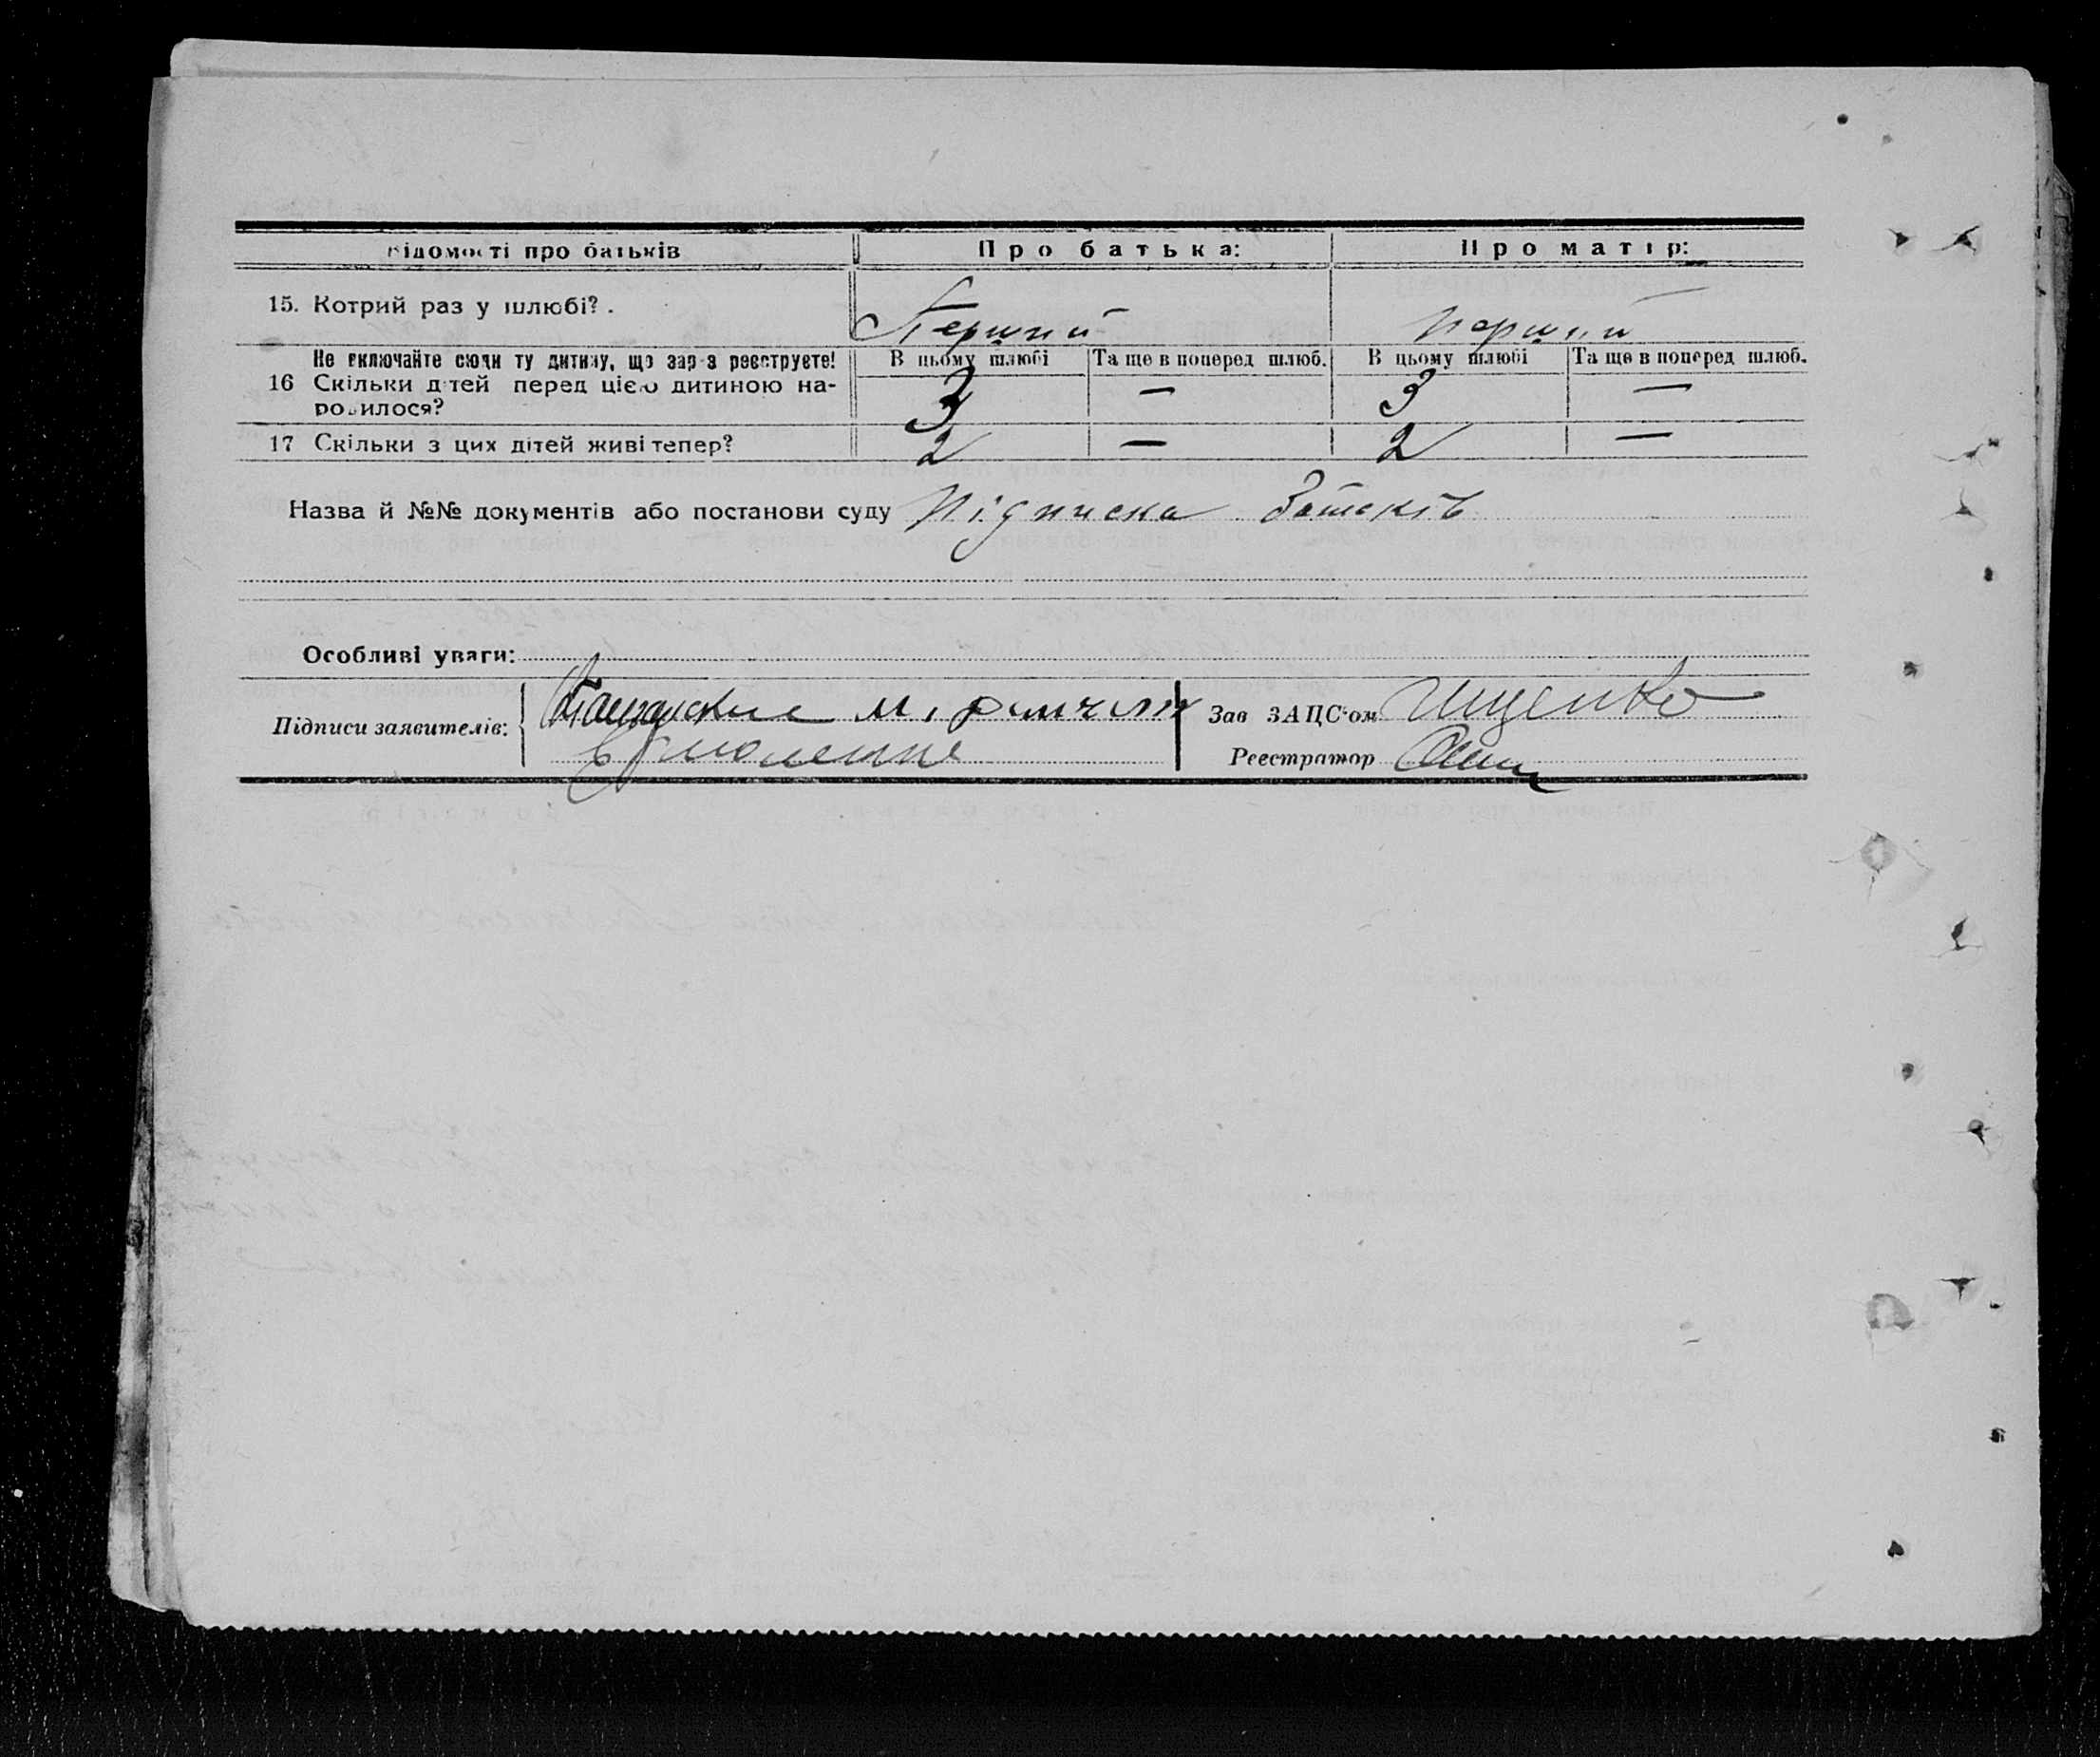 Відомості про батьків Про батька: Про матір:
15. Котрий раз у шлюбі? . Перший перший
Не включайте сюди ту дитину, що зараз реєструєте! В цьому шлюбі Та ще в поперед шлюб. В цьому шлюбі Та ще в поперед шлюб.
16 Скільки дітей перед цією дитиною на- 3 — 3 —
родилося?
17 Скільки з цих дітей живі тепер? 2 — 2 —
Назва й №№ документів або постанови суду Підписка батьків
Особливі уваги:
Підписи заявителів: М. Зав ЗАЦС'ом Ищенко
Реєстратор